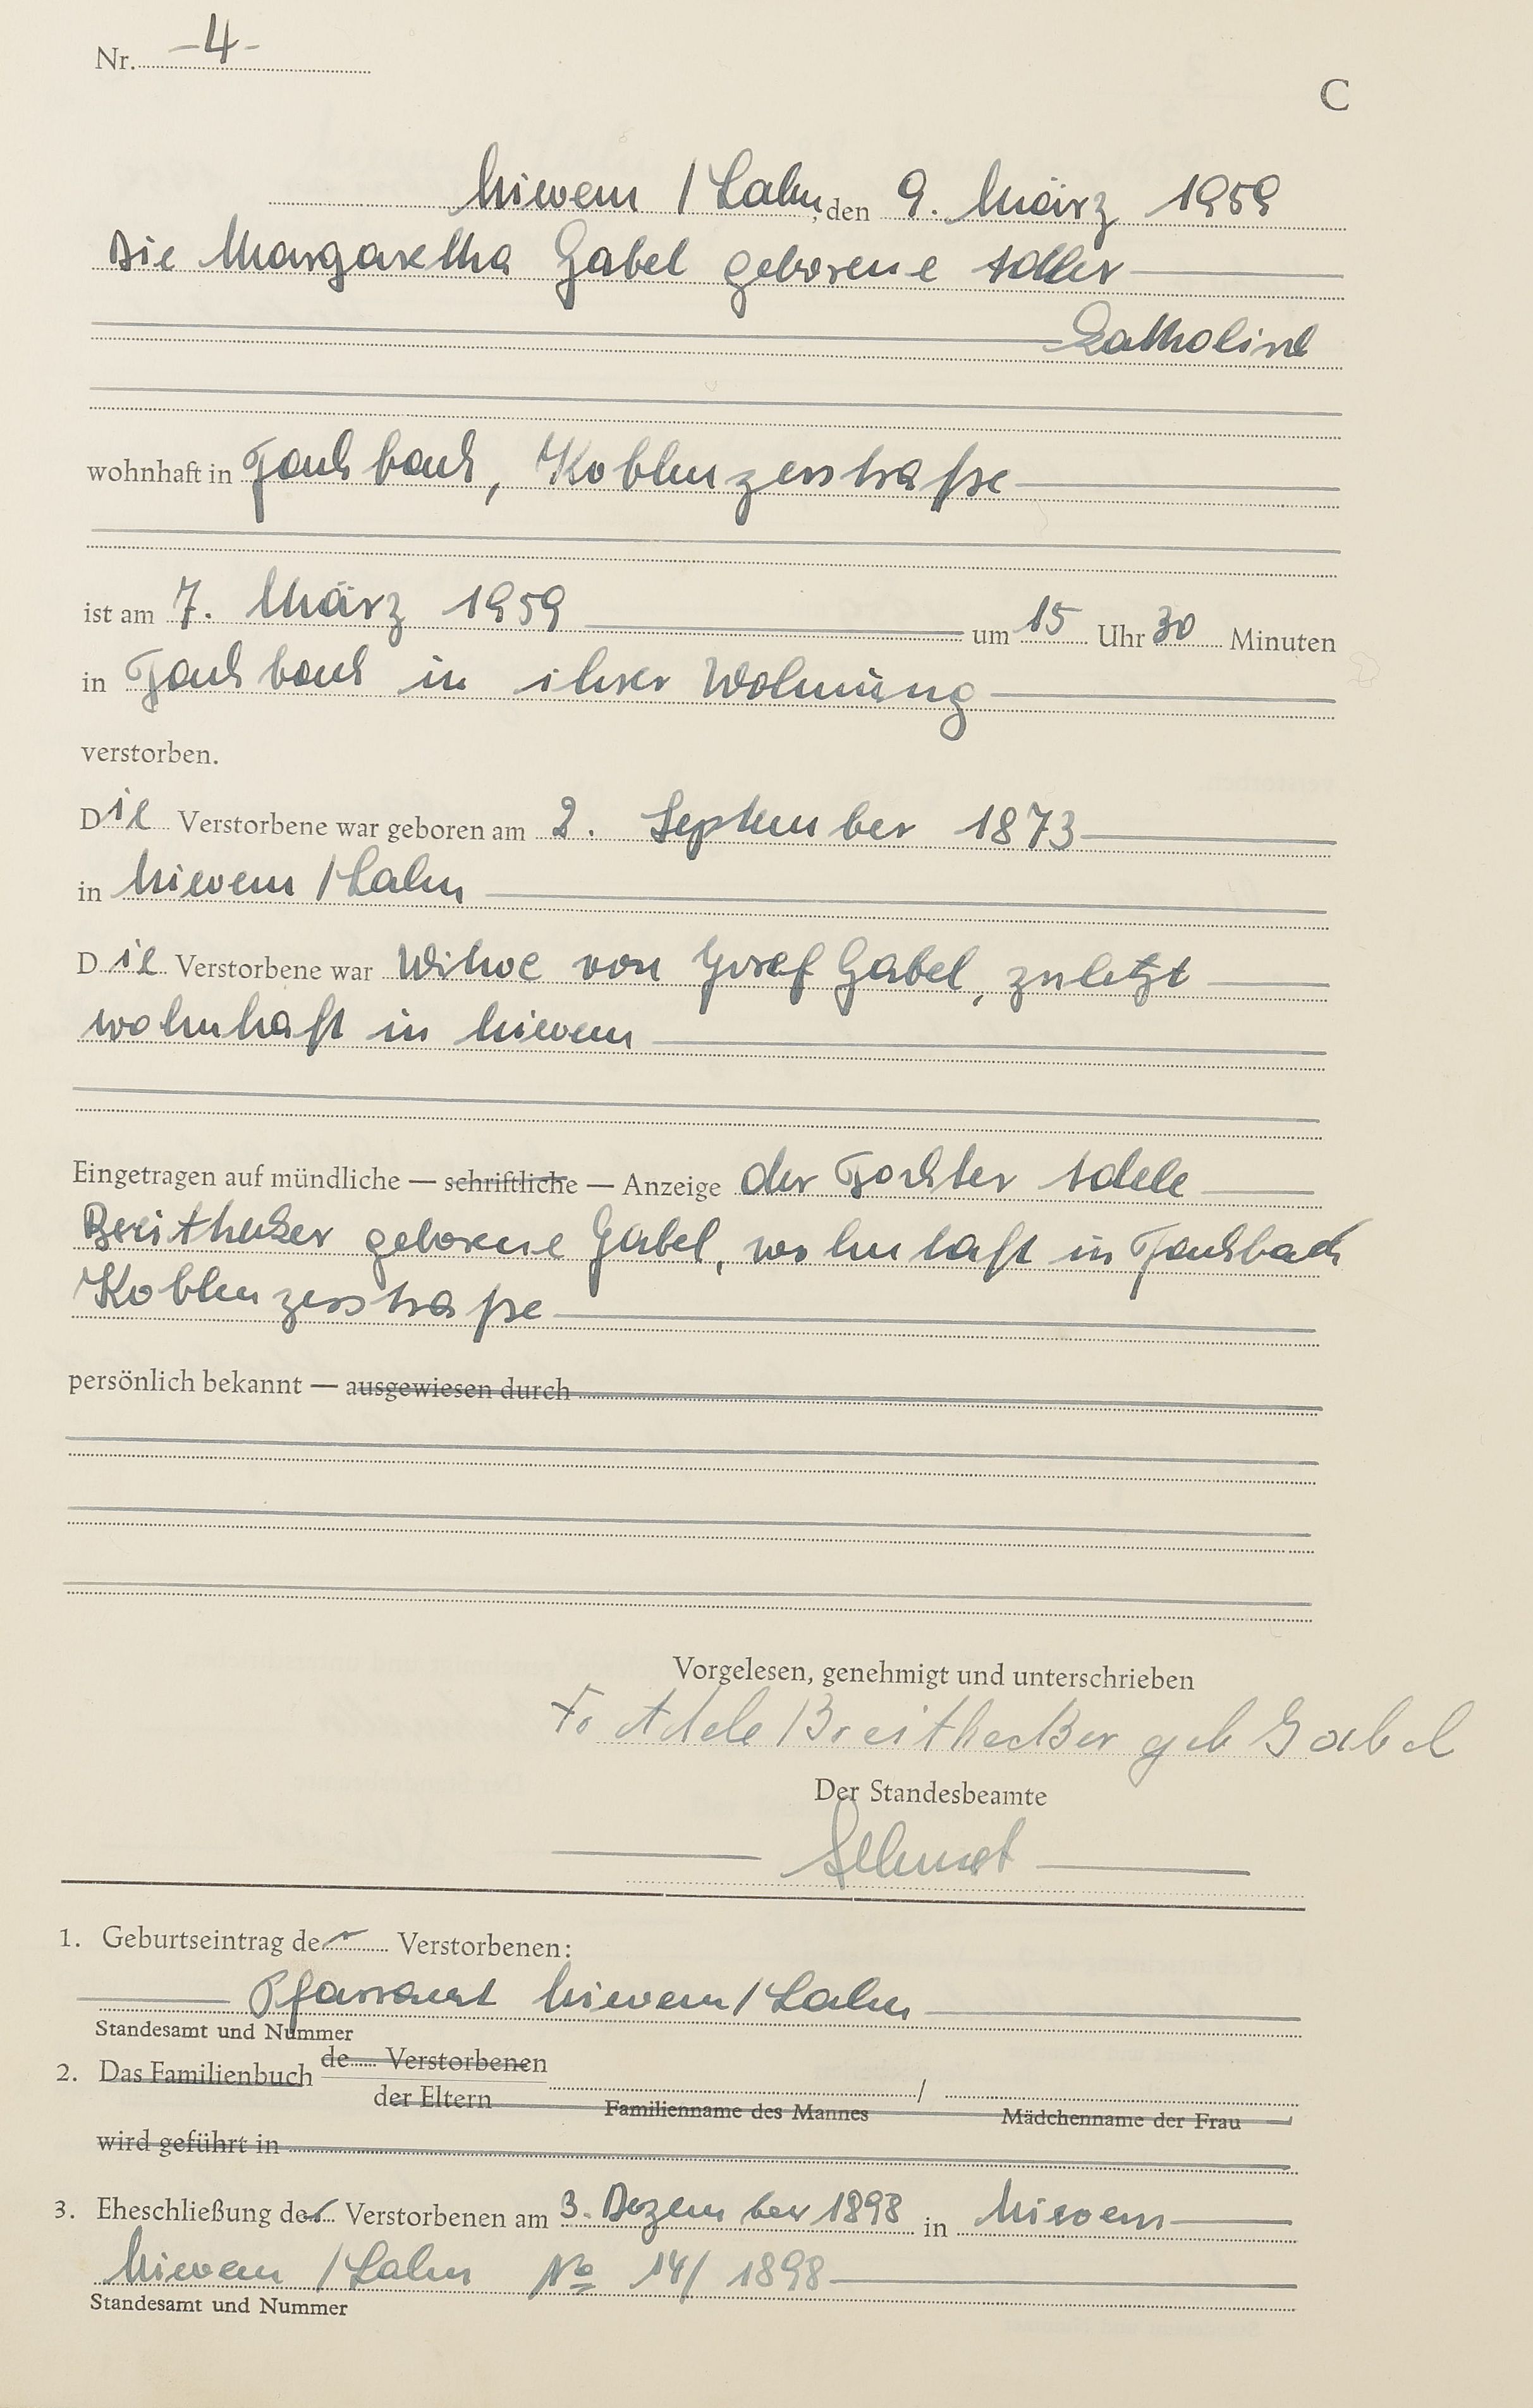 Nr. -4-
C
Mievern / Lahn, den 9. März 1959
Die Margaretha Gabel geborene Adler
katholisch
wohnhaft in Fachbach, Koblenzerstraße
ist am 7. März 1959 um 15 Uhr 30 Minuten
in Fachbach in ihrer Wohnung
verstorben.
Die Verstorbene war geboren am 2. September 1873
in Mievern / Lahn
Die Verstorbene war Witwe von Josef Gabel, zuletzt
wohnhaft in Mievern
Eingetragen auf mündliche — schriftliche — Anzeige der Tochter Adele
Breithecker geborene Gabel, wohnhaft in Fachbach
Koblenzerstraße
persönlich bekannt — ausgewiesen durch
Vorgelesen, genehmigt und unterschrieben
Fr. Adele Breithecker geb Gabel
Der Standesbeamte
1. Geburtseintrag der Verstorbenen:
Pfarramt Mievern / Lahn
Standesamt und Nummer
2. Das Familienbuch de Verstorbenen
der Eltern / Familienname des Mannes Mädchenname der Frau
wird geführt in
3. Eheschließung der Verstorbenen am 3. Dezember 1898 in Mievern
Mievern / Lahn No 14/ 1898
Standesamt und Nummer